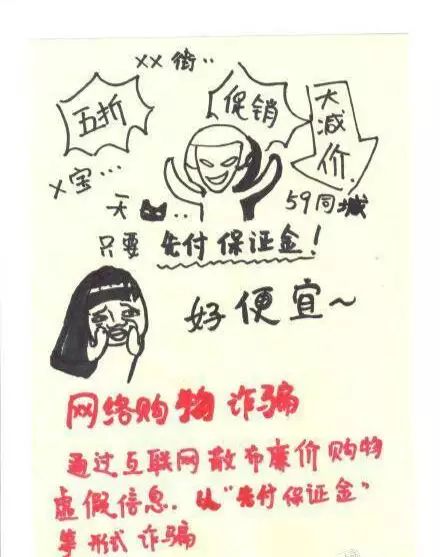 ××街··
五折
促销
大减价
×宝···
天 ··
59同城
只要 先付保证金!
好便宜~
网络购物诈骗
通过互联网散布廉价购物
虚假信息.以"先付保证金"
等形式诈骗